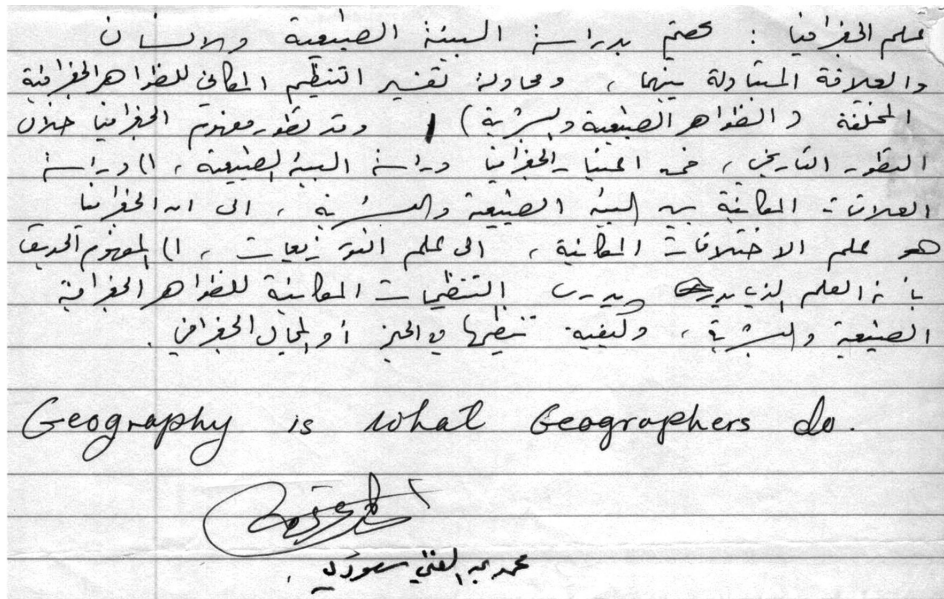 علم الجغرافيا : يهتم بدراسة البيئة الطبيعية والانسان
والعلاقة المتبادلة بينهما ، ومحاولة تفسير التنظيم المكاني للظواهر الجغرافية
المختلفة ( الظواهر الطبيعية والبشرية ) وقد تطور مفهوم الجغرافيا خلال
التطور التاريخي ، فمن اعتبار الجغرافيا دراسة البيئة الطبيعية ، الى دراسة
العلاقات المكانية بين البيئة الطبيعية والبشرية ، الى ان الجغرافيا
هو علم الاختلافات المكانية ، الى علم التوزيعات ، الى المفهوم الحديث
بانه العلم الذي يدرس التنظيمات المكانية للظواهر الجغرافية
الطبيعية والبشرية ، وكيفية تنظيمها في الحيز أو المجال الجغرافي .
Geography is what Geographers do.
محمد عبد الغني سعودي